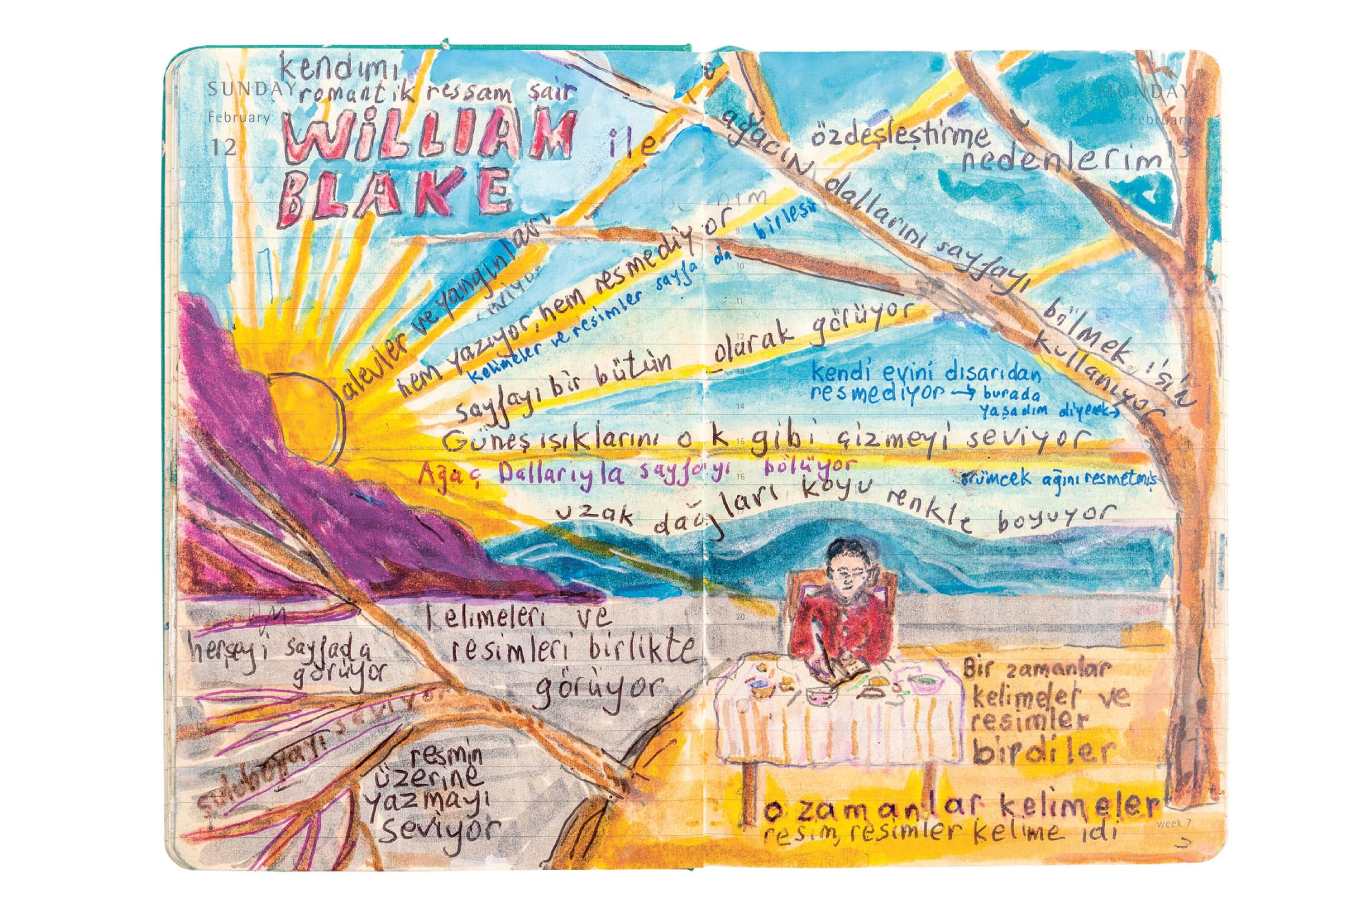 SUNDAY
February
12
kendimi
romantik ressam şair
WİLLİAM
BLAKE
ile
MONDAY
February
13
özdeşleştirme
nedenlerim
ağacın dallarını sayfayı
bölmek için
kullanıyor
alevler ve yangınları
seviyor
hem yazıyor, hem resmediyor
kelimeler ve resimler sayfa da birleşir
sayfayı bir bütün olarak görüyor
kendi evini dışarıdan
resmediyor → burada
yaşadım diyerek
Güneş ışıklarını ok gibi çizmeyi seviyor
Ağaç Dallarıyla sayfayı bölüyor
örümcek ağını resmetmiş
uzak dağları koyu renkle boyuyor
kelimeleri ve
resimleri birlikte
görüyor
herşeyi sayfada
görüyor
suluboyayı seviyor
resmin
üzerine
yazmayı
seviyor
Bir zamanlar
kelimeler ve
resimler
birdiler
o zamanlar kelimeler
resim, resimler kelime idi
week 7